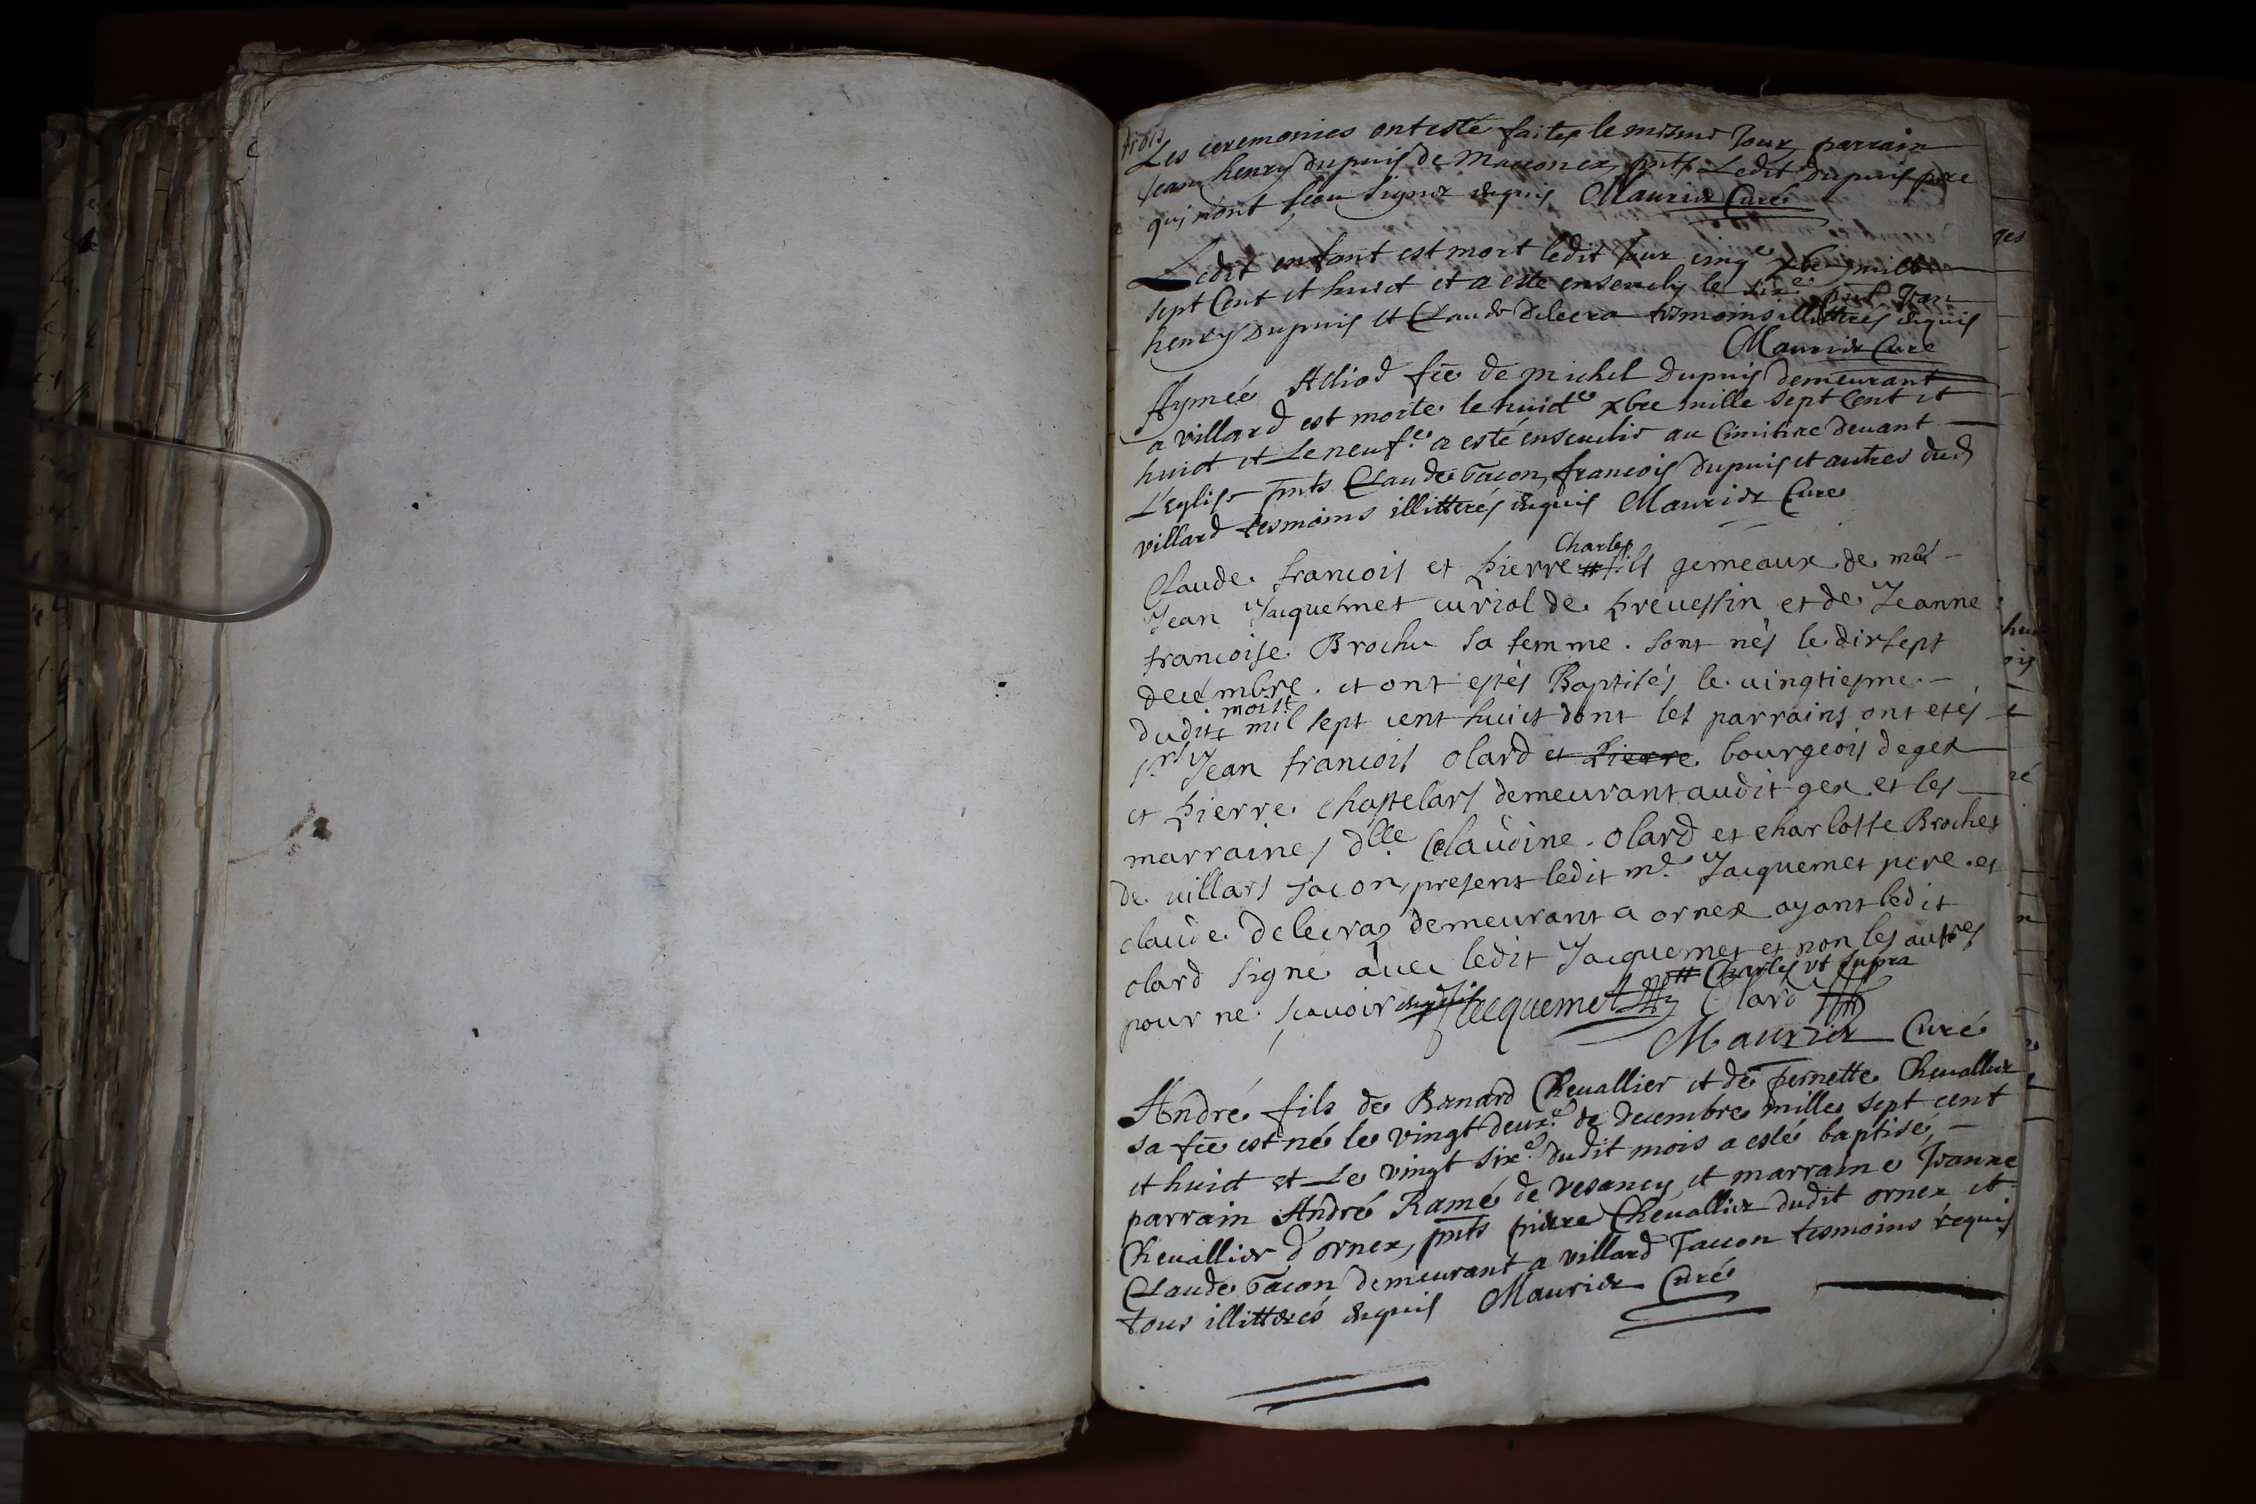 trois
Les ceremonies ont esté faites le mesme Jour, parrain
Jean henry dupuis de Maconex, pnts Ledit Dupuis pere
qui n'ont sceu signer enquis Maurier Curé
Ledit enfant est mort ledit Jour cinqe xbre mille
sept Cent et huict et a esté ensevely le sixe pnts Jean
henry Dupuis et Claude Delecra tesmoins illitteres enquis
Maurier Curé
Aymée Alliod fee de michel Dupuis demeurant
a villard est morte le huicte xbre mille sept Cent et
huict et Le neufe a esté ensevelie au Cimitire devant
L'Eglise pnts Claude Tacon, francois Dupuis et autres dud
villard tesmoins illitterés enquis Maurier Cure
Charles
Claude francois et pierre # fils gemeaux de me
Jean Jacquemet curiol de prevessin et de Jeanne
francoise Brochu sa femme. sont nés le dixsept
decembre. et ont estés Baptisés le vingtiesme
moist
dudit + mil sept cent huict dont les parrains ont etés
srs Jean francois olard et pierre bourgeois de gex
et pierre chastelars demeurant audit gex et les
marraines dlle Claudine olard et charlotte Brochet
de villars tacon, present ledit me Jacquemet pere et
claude delecraz demeurant a ornex ayant ledit
olard signé avec ledit Jacquemet et non les autres
# Charles vt supra
pour ne scavoir enquis Jacquemet Olard
Maurier Curé
André fils de Bernard Chevallier et de pernette Chevallier
sa fee est né le vingt deuxe de decembre mille sept cent
et huict et Le vingt sixe dudit mois a esté baptisé,
parrain André Ramé de vesancy et marraine Jeanne
Chevallier d'ornex, pnts pierre Chevallier dudit ornex et
Claude Tacon demeurant a villard Taccon tesmoins requis
tous illitterés enquis Maurier Curé